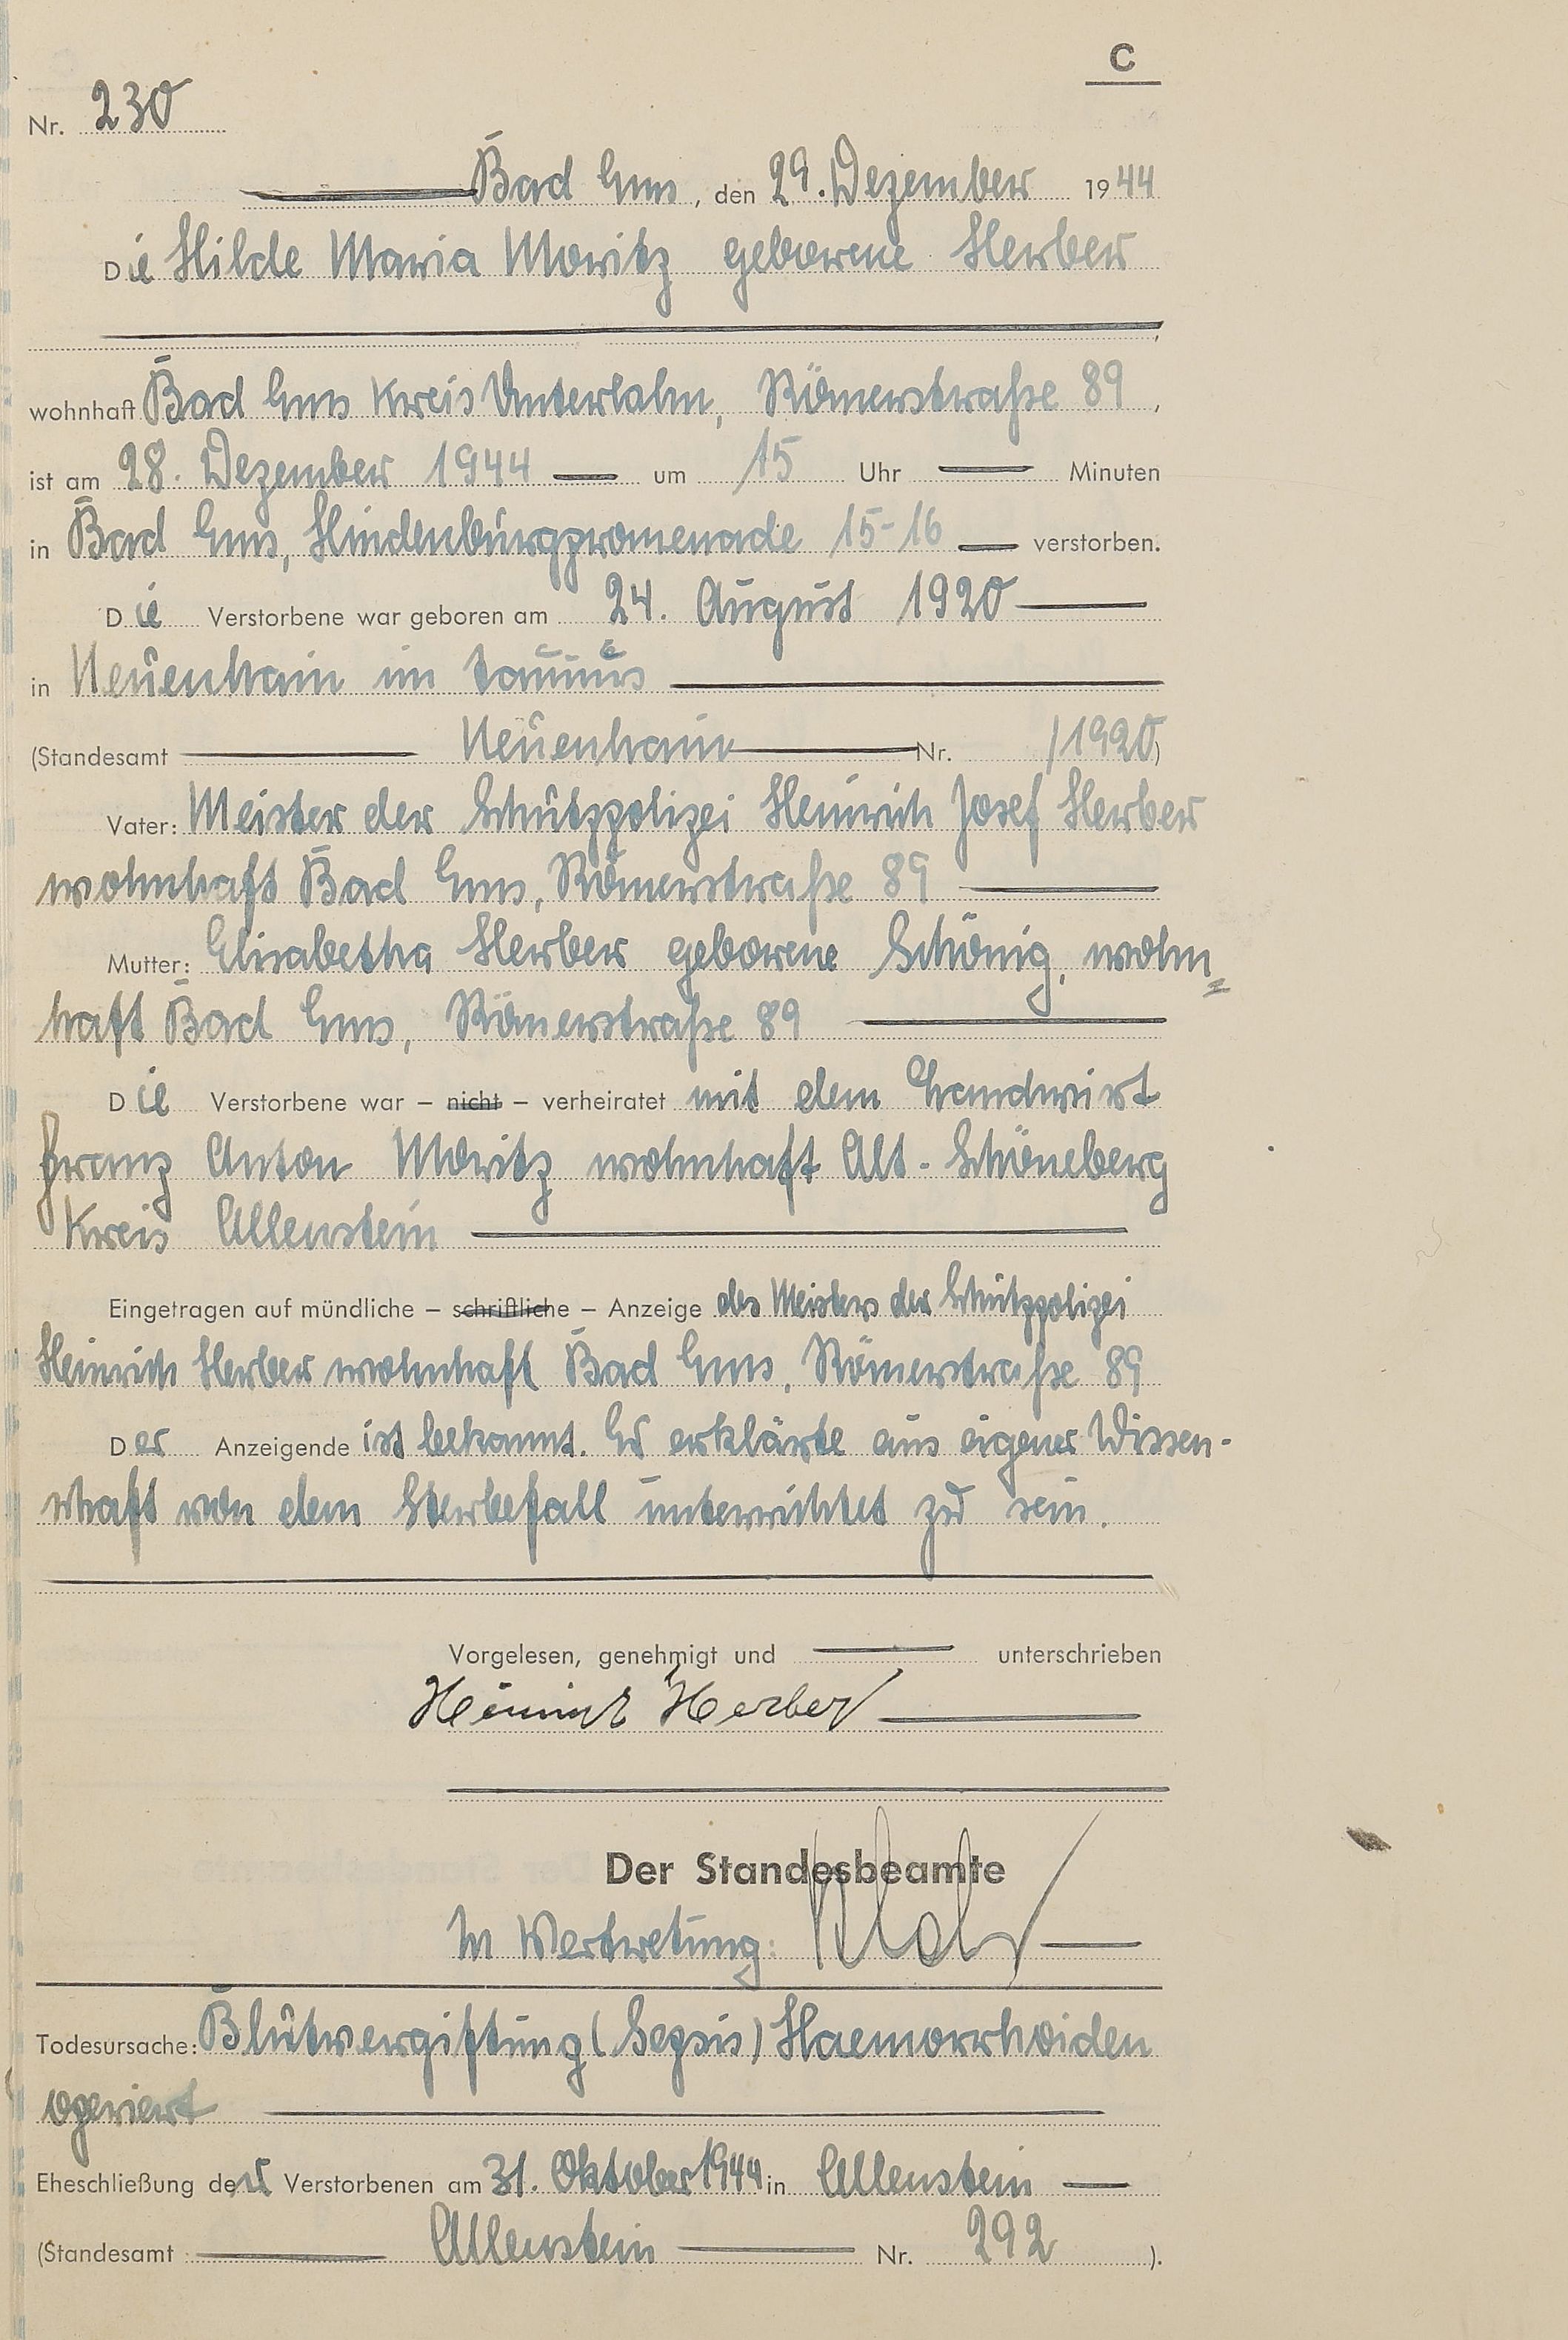 C
Nr. 230
Bad Ems, den 29. Dezember 1944
Die Hilde Maria Moritz geborene Herber
wohnhaft Bad Ems Kreis Unterlahn, Römerstraße 89,
ist am 28. Dezember 1944 — um 15 Uhr — Minuten
in Bad Ems, Hindenburgpromenade 15-16 — verstorben.
Die Verstorbene war geboren am 24. August 1920
in Neuenhain im Taunus
(Standesamt — Neuenhain — Nr. /1920)
Vater: Meister der Schutzpolizei Heinrich Josef Herber
wohnhaft Bad Ems, Römerstraße 89
Mutter: Elisabetha Herber geborene Schönig, wohn=
haft Bad Ems, Römerstraße 89
Die Verstorbene war – nicht – verheiratet mit dem Landwirt
Franz Anton Moritz wohnhaft Alt-Schöneberg
Kreis Allenstein
Eingetragen auf mündliche – schriftliche – Anzeige des Meisters der Schutzpolizei
Heinrich Herber wohnhaft Bad Ems, Römerstraße 89
Der Anzeigende ist bekannt. Er erklärte aus eigener Wissen-
schaft von dem Sterbefall unterrichtet zu sein.
Vorgelesen, genehmigt und — unterschrieben
Heinrich Herber
Der Standesbeamte
In Vertretung:
Todesursache: Blutvergiftung (Sepsis) Haemorrhoiden
operiert
Eheschließung der Verstorbenen am 31. Oktober 1944 in Allenstein —
(Standesamt — Allenstein — Nr. 292 ).